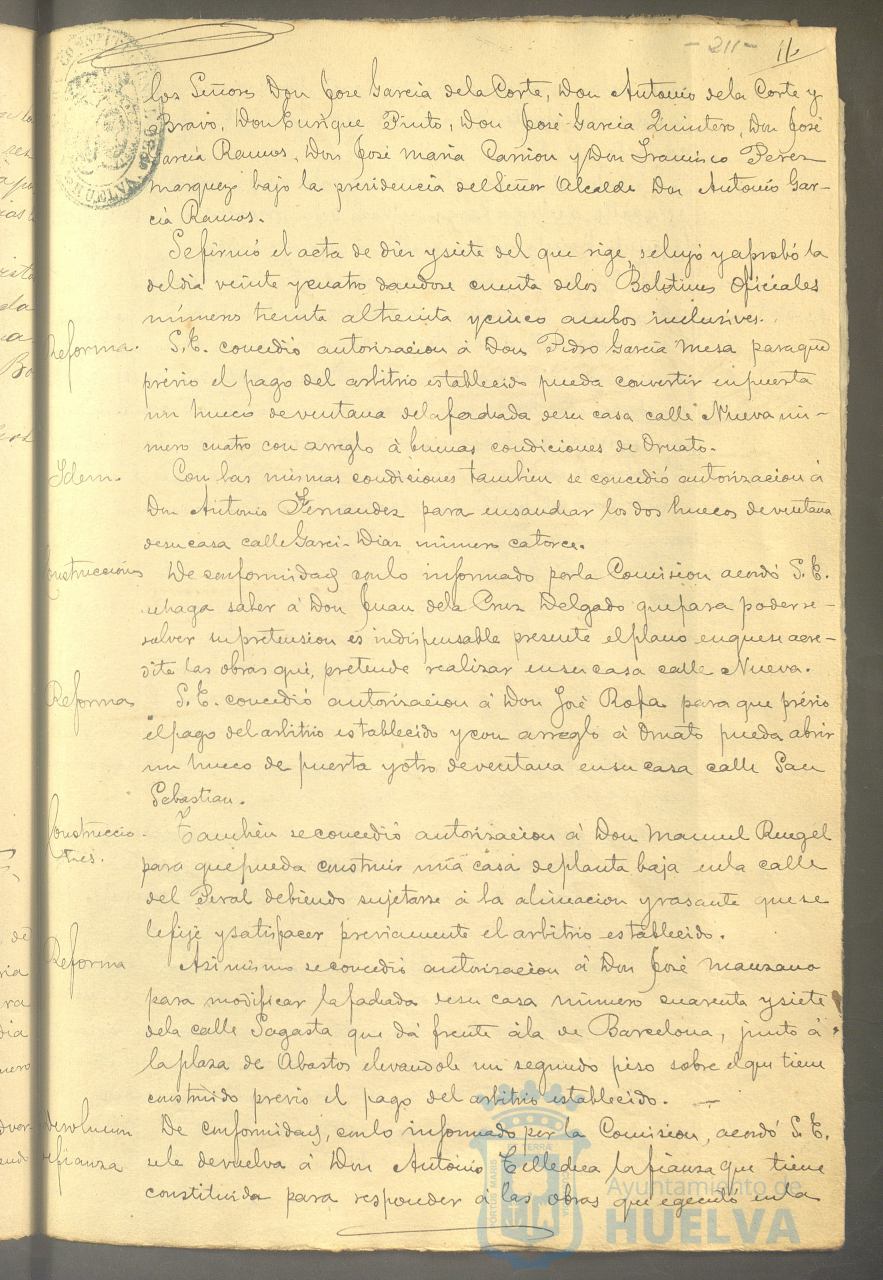 - 211 - 11
los Señores Don Jose Garcia dela Corte, Don Antonio dela Corte y
Bravo, Don Enrique Pinto, Don José Garcia Quintero, Don José
Garcia Ramos, Don José Maria Carrion y Don Francisco Perez
Marquez bajo la presidencia del Señor Alcalde Don Antonio Gar-
cia Ramos.
Se firmó el acta de diez y siete del que rige, se leyó y aprobó la
del dia veinte y cuatro dandose cuenta delos Boletines Oficiales
números treinta al treinta y cinco ambos inclusives.
Reforma. S. E. concedió autorizacion á Don Pedro Garcia Mesa para que
prévio el pago del arbitrio establecido pueda convertir en puerta
un hueco de ventana dela fachada desu casa calle Nueva nú-
mero cuatro con arreglo á buenas condiciones de Ornato.
Idem. Con las mismas condiciones tambien se concedió autorizacion á
Don Antonio Fernandez para ensanchar los dos huecos de ventana
desu casa calle Garci-Diaz número catorce.
Construcciones De conformidad con lo informado por la Comision acordó S. E.
se haga saber á Don Juan dela Cruz Delgado que para poder re-
solver su pretension es indispensable presente el plano en que se acre-
dite las obras que, pretende realizar en su casa calle Nueva.
Reforma S. E. concedió autorizacion á Don José Rofa para que prévio
el pago del arbitrio establecido y con arreglo á Ornato pueda abrir
un hueco de puerta y otro de ventana en su casa calle San
Sebastian.
Construccio- Tambien se concedió autorizacion á Don Manuel Rengel
nes. para que pueda construir una casa de planta baja en la calle
del Peral debiendo sujetarse á la alineacion y rasante que se
le fije y satisfacer previamente el arbitrio establecido.
Reforma Asi mismo se concedió autorizacion á Don José Manzano
para modificar la fachada desu casa número cuarenta y siete
dela calle Sagasta que dá frente á la de Barcelona, junto á
la plaza de Abastos elevandole un segundo piso sobre el que tiene
construido previo el pago del arbitrio establecido. —
devolucion De conformidad, con lo informado por la Comision, acordó S. E.
fianza se le devuelva á Don Antonio la fianza que tiene
constituida para responder á las obras que egecutó en la
PORTUS MARIS
TERRÆ
Ayuntamiento de
HUELVA